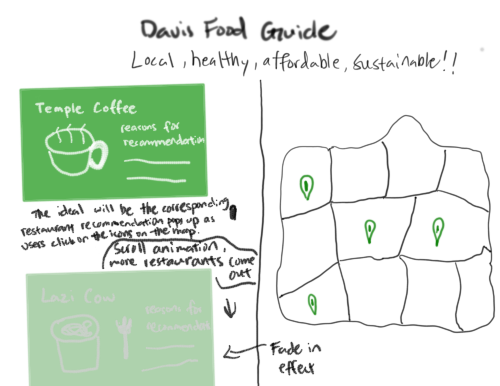 Davis Food Guide
Local, healthy, affordable, sustainable!!
Temple Coffee
reasons for
recommendation
The ideal will be the corresponding
restaurant recommendation pops up as
users click on the icons on the map.
Scroll animation,
more restaurants come
out
Lazi Cow
reasons for
recommendation
Fade in
effect